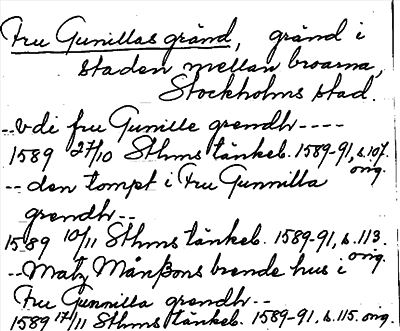 Fru Gunillas gränd, gränd i
staden mellan broarna,
Stockholms stad.
-- vdi fru Gunille grendh ----
1589 27/10 Sthms tänkeb. 1589-91, s. 107.
orig.
-- den tompt i Fru Gunnilla
grendh --
1589 10/11 Sthms tänkeb. 1589-91, s. 113.
orig.
-- Matz Månßons brende hus i
Fru Gunnilla grendh --
1589 17/11 Sthms tänkeb. 1589-91, s. 115. orig.